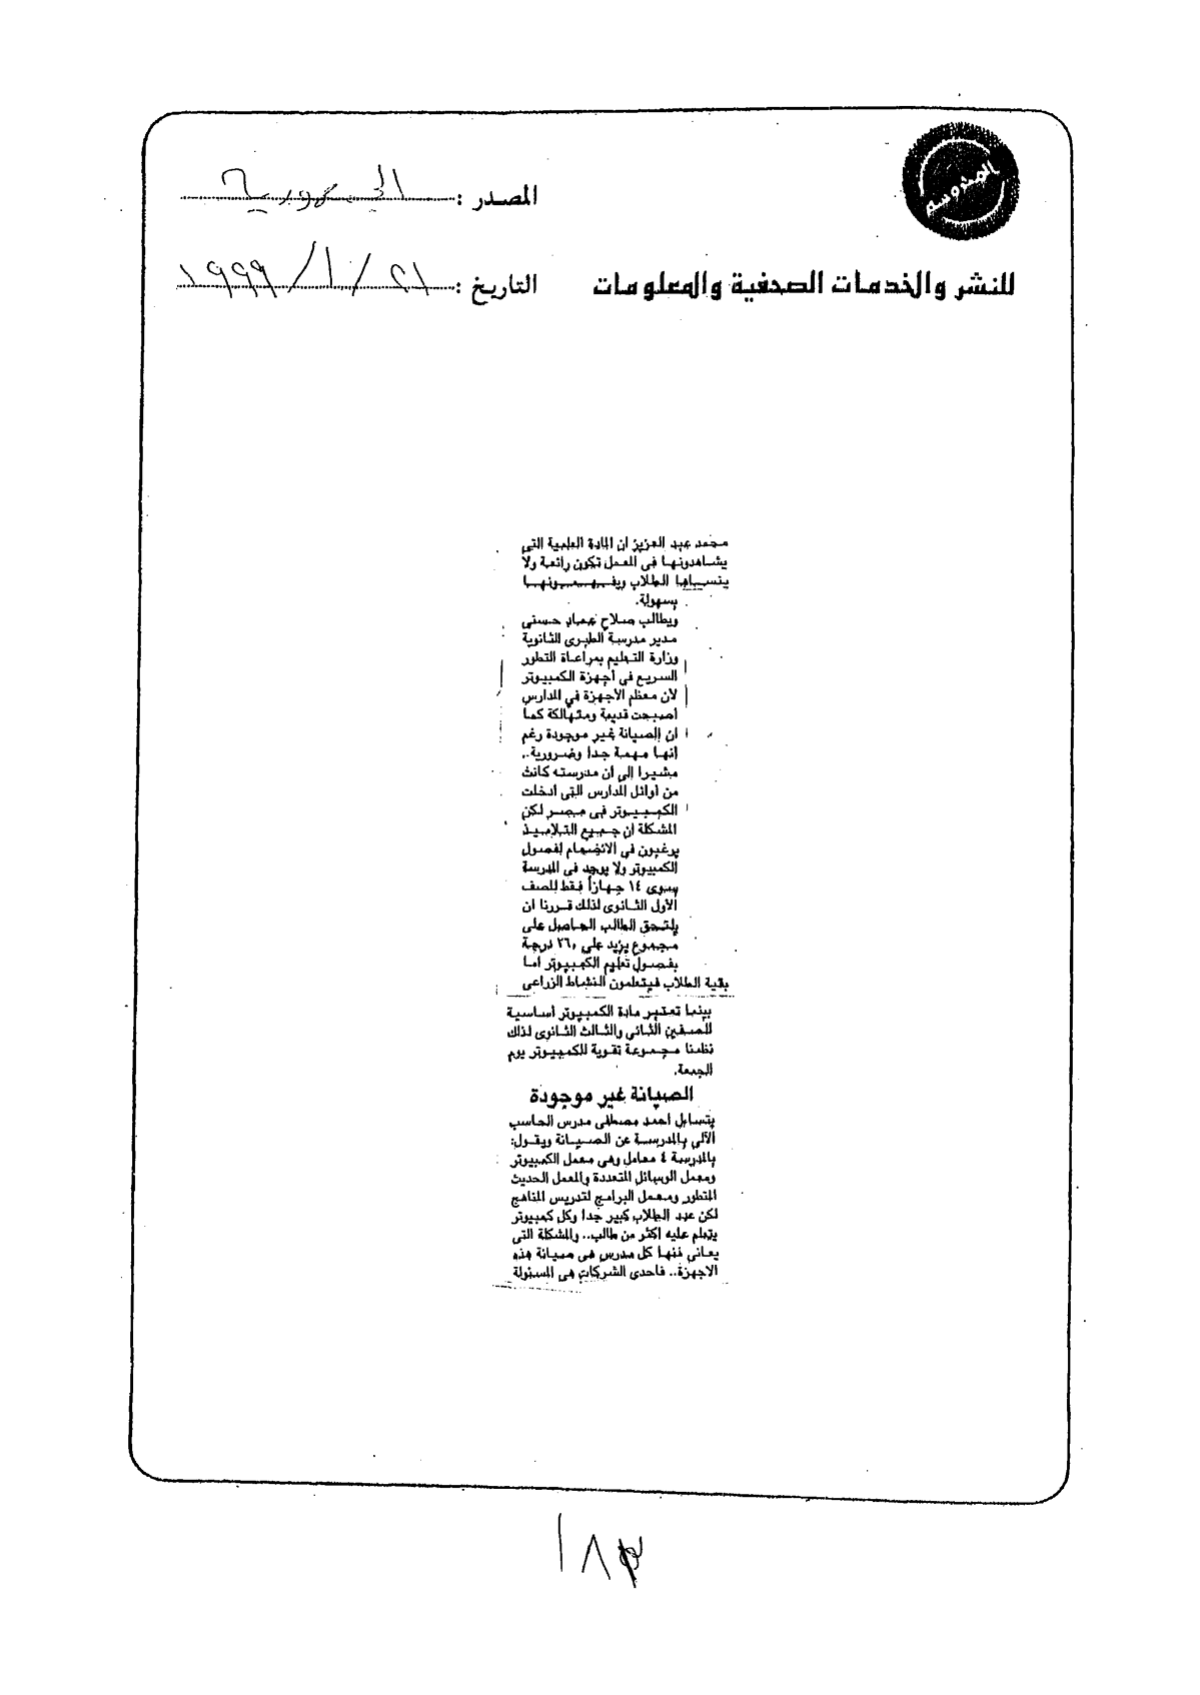 المحروسة
المصدر : الجمهورية
للنشر والخدمات الصحفية والمعلومات
التاريخ : ٢١ / ١ / ١٩٩٩
محمد عبد العزيز ان المادة العلمية التى
يشاهدونها فى المعمل تكون رائعة ولا
ينساها الطلاب ويفهمونها
بسهولة.
ويطالب صلاح عماد حسنى
مدير مدرسة الطبرى الثانوية
وزارة التعليم بمراعاة التطور
السريع فى أجهزة الكمبيوتر
لأن معظم الأجهزة فى المدارس
أصبحت قديمة ومتهالكة كما
ان الصيانة غير موجودة رغم
إنها مهمة جدا وضرورية..
مشيرا إلى أن مدرسته كانت
من اوائل المدارس التى ادخلت
الكمبيوتر فى مصر لكن
المشكلة ان جميع التلاميذ
يرغبون فى الانضمام لفصول
الكمبيوتر ولا يوجد فى المدرسة
سوى ١٤ جهازاً فقط للصف
الأول الثانوى لذلك قررنا ان
يلتحق الطالب الحاصل على
مجموع يزيد على ٢٦٠ درجة
بفصول تعليم الكمبيوتر اما
بقية الطلاب فيتعلمون النشاط الزراعى
بينما تعتبر مادة الكمبيوتر أساسية
للصفين الثانى والثالث الثانوى لذلك
نظمنا مجموعة تقوية للكمبيوتر يوم
الجمعة.
الصيانة غير موجودة
يتساءل أحمد مصطفى مدرس الحاسب
الآلى بالمدرسة عن الصيانة ويقول:
بالمدرسة ٤ معامل وهى معمل الكمبيوتر
ومعمل الوسائل المتعددة والمعمل الحديث
المتطور ومعمل البرامج لتدريس المناهج
لكن عدد الطلاب كبير جدا وكل كمبيوتر
يتعلم عليه اكثر من طالب.. والمشكلة التى
يعانى منها كل مدرس هى صيانة هذه
الاجهزة.. فاحدى الشركات هى المسئولة